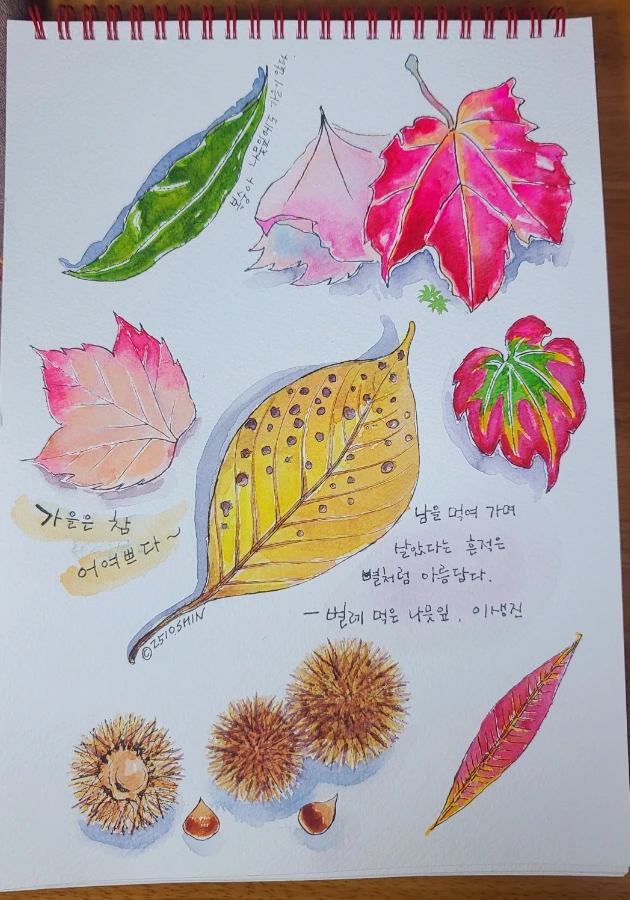 복숭아 나뭇잎에도 가을이 앉다.
가을은 참
어여쁘다~
남을 먹여 가며
살았다는 흔적은
별처럼 아름답다.
- 벌레 먹은 나뭇잎. 이생진
©2510SHIN